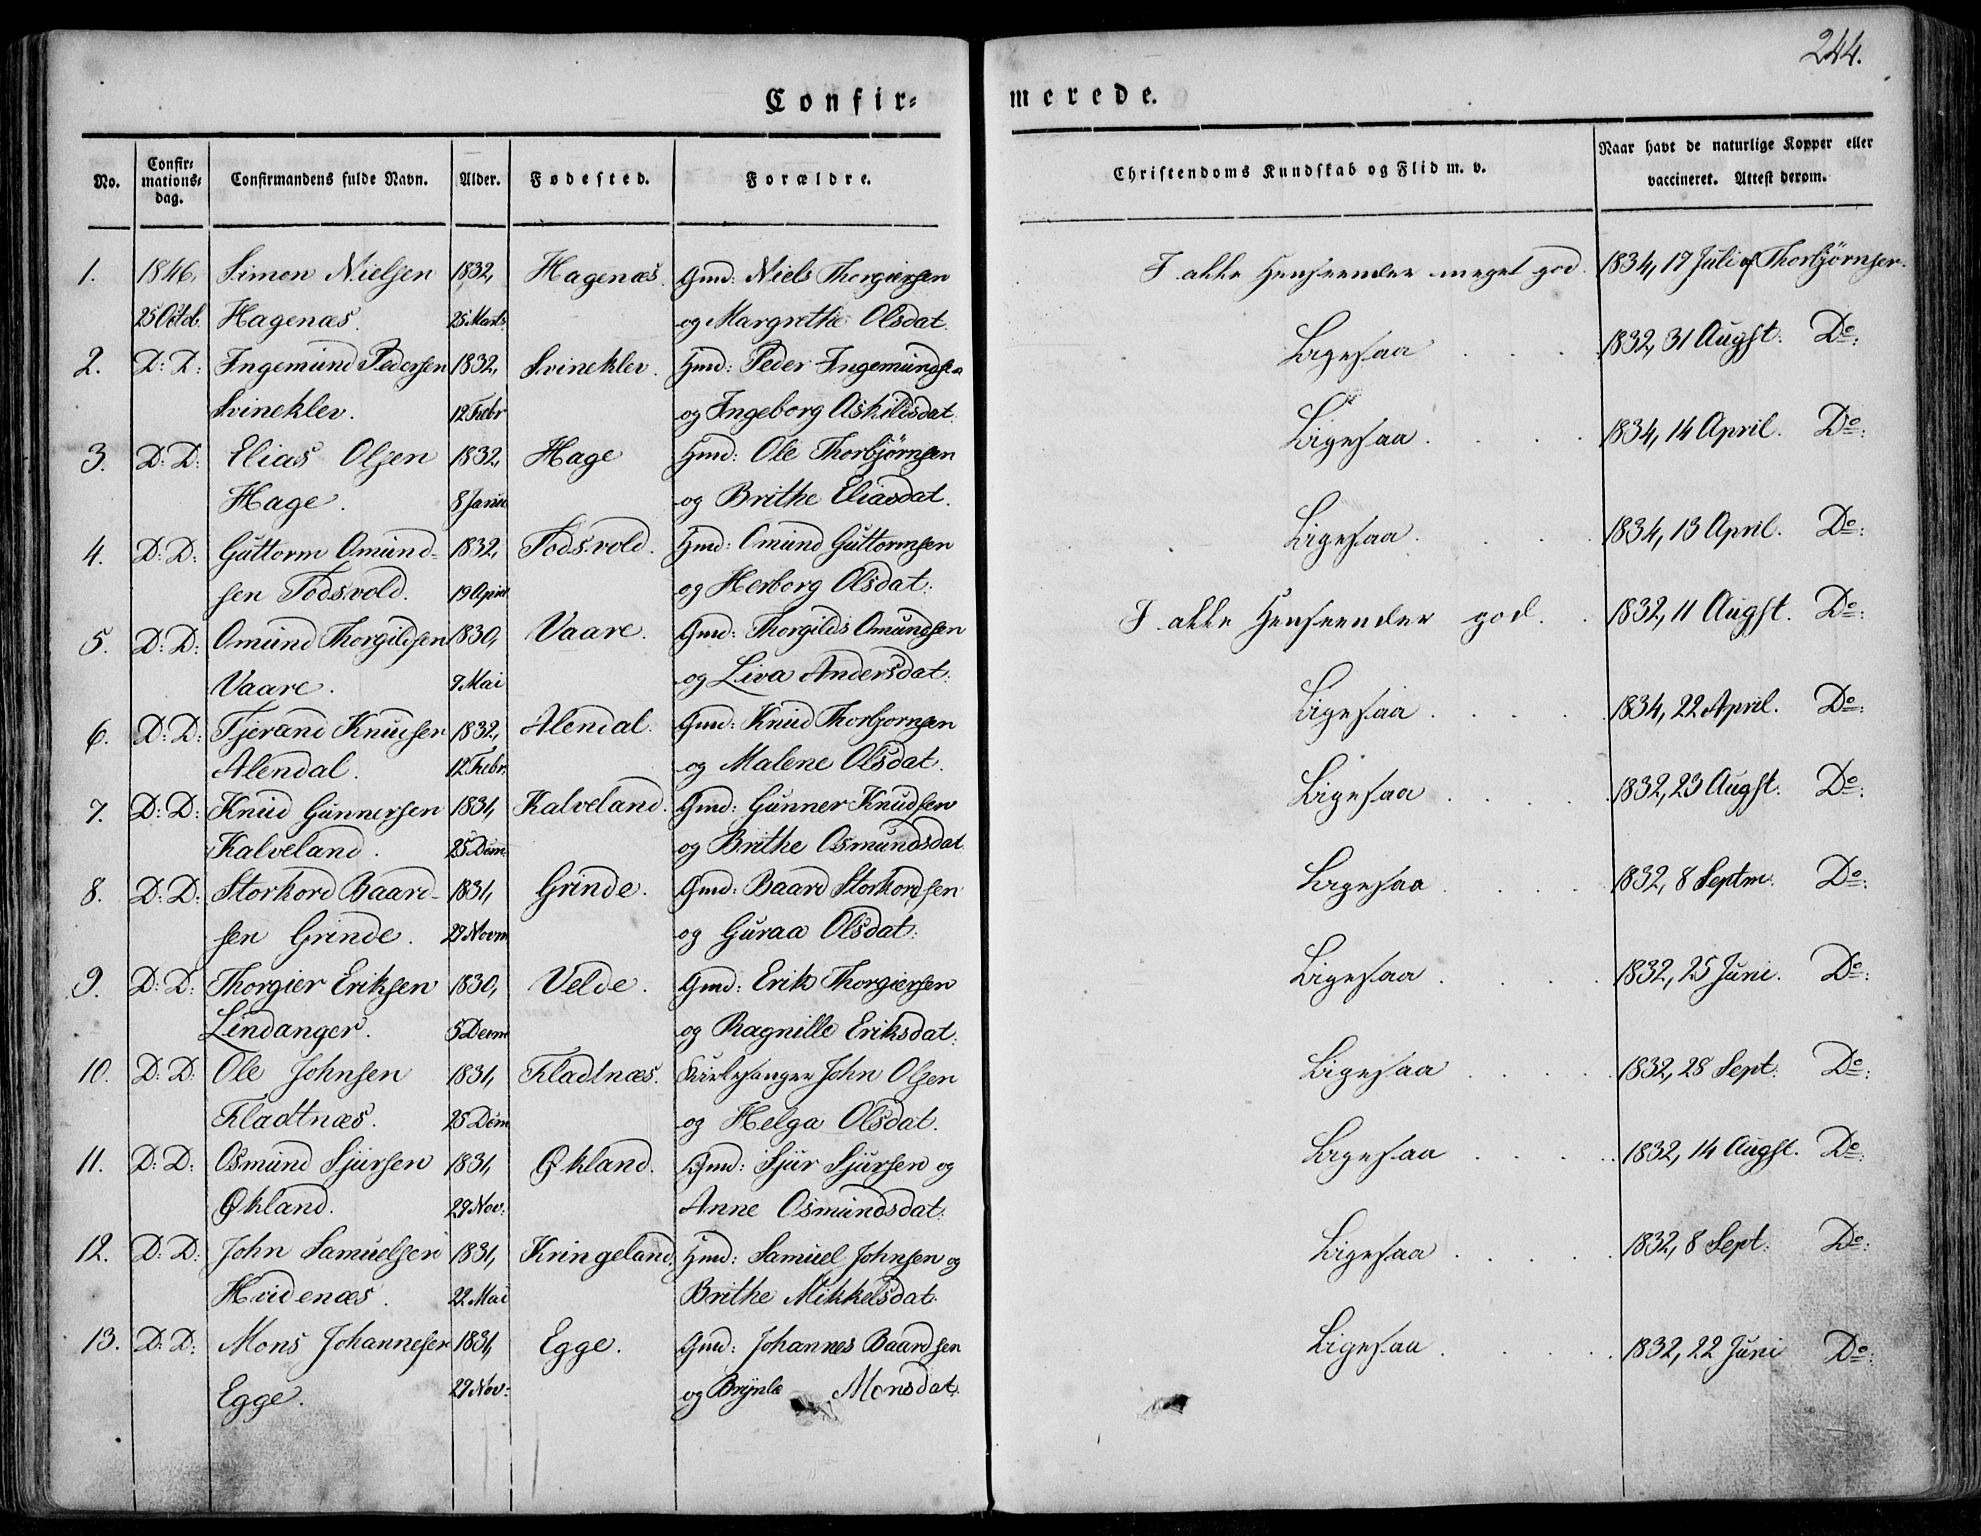 244.
Confir=
merede.
No.
Confir=
mations=
dag.
Confirmandens fulde Navn.
Alder.
Fødested.
Forældre.
Christendoms Kundskab og Flid m. v.
Naar havt de naturlige Kopper eller
vaccineret. Attest derom.
1. 1846, Simon Nielsen 1832, Hagenæs. Gmd: Niels Thorgiersen I alle Henseender meget god. 1834, 17 Juli af Thorbjørnsen.
25 Octob. Hagenæs. 25 Marts og Margrethe Olsdat.
2. D: D: Ingemund Pedersen 1832, Svineklev. Hmd: Peder Ingemundsen Ligesaa 1832, 31 Augst. Do:
Svineklev. 12 Febr og Ingeborg Askildsdat.
3. D: D: Elias Olsen 1832, Hage Hmd: Ole Thorbjørnsen Ligesaa. 1834, 14 April. Do:
Hage. 8 Janu og Brithe Eliasdat.
4. D: D: Guttorm Omund- 1832, Fodsvold. Hmd: Omund Guttormsen Ligesaa. 1834, 13 April. Do:
sen Fodsvold. 19 April og Herborg Olsdat:
5. D: D: Omund Thorgildsen 1830, Vaare. Gmd: Thorgilds Omundsen I alle Henseender god. 1832, 11 Augst. Do:
Vaare. 7 Mai og Liva Andersdat:
6. D: D: Tjerand Knudsen 1832, Alendal. Gmd: Knud Thorbjornsen Ligesaa. 1834, 22 April. Do:
Alendal. 12 Febr. og Malene Olsdat.
7. D: D: Knud Gunnersen 1831, Kalveland. Gmd: Gunner Knudsen Ligesaa 1832, 23 Augst. Do:
Kalveland. 25 Decm og Brithe Osmundsdat
8. D: D: Storkord Baard- 1831, Grinde. Gmd: Baard Storkordsen Ligesaa 1832, 8 Septm. Do:
sen Grinde. 27 Novm og Guraa Olsdat:
9. D: D: Thorgier Eriksen 1830, Velde. Gmd: Erik Thorgiersen Ligesaa 1832, 25 Juni. Do:
Lindanger. 5 Decm og Ragnille Eriksdat:
10. D: D: Ole Johnsen 1831, Fladtnæs. Kirkesanger John Olsen Ligesaa 1832, 28 Sept: Do:
Fladtnæs. 25 Decm og Helga Olsdat.
11. D: D: Osmund Sjursen 1831, Økland. Gmd: Sjur Sjursen og Ligesaa 1832, 14 Augst. Do:
Økland. 29 Nov: Anne Osmundsdat:
12. D: D: John Samuelsen 1831, Kringeland. Hmd: Samuel Johnsen og Ligesaa 1832, 8 Sept: Do:
Hvidenæs. 22 Mai Brithe Mikkelsdat.
13. D: D: Mons Johannesen 1831, Egge. Gmd: Johannes Baardsen Ligesaa. 1832, 22 Juni Do:
Egge. 27 Nov: og Brynla Monsdat.